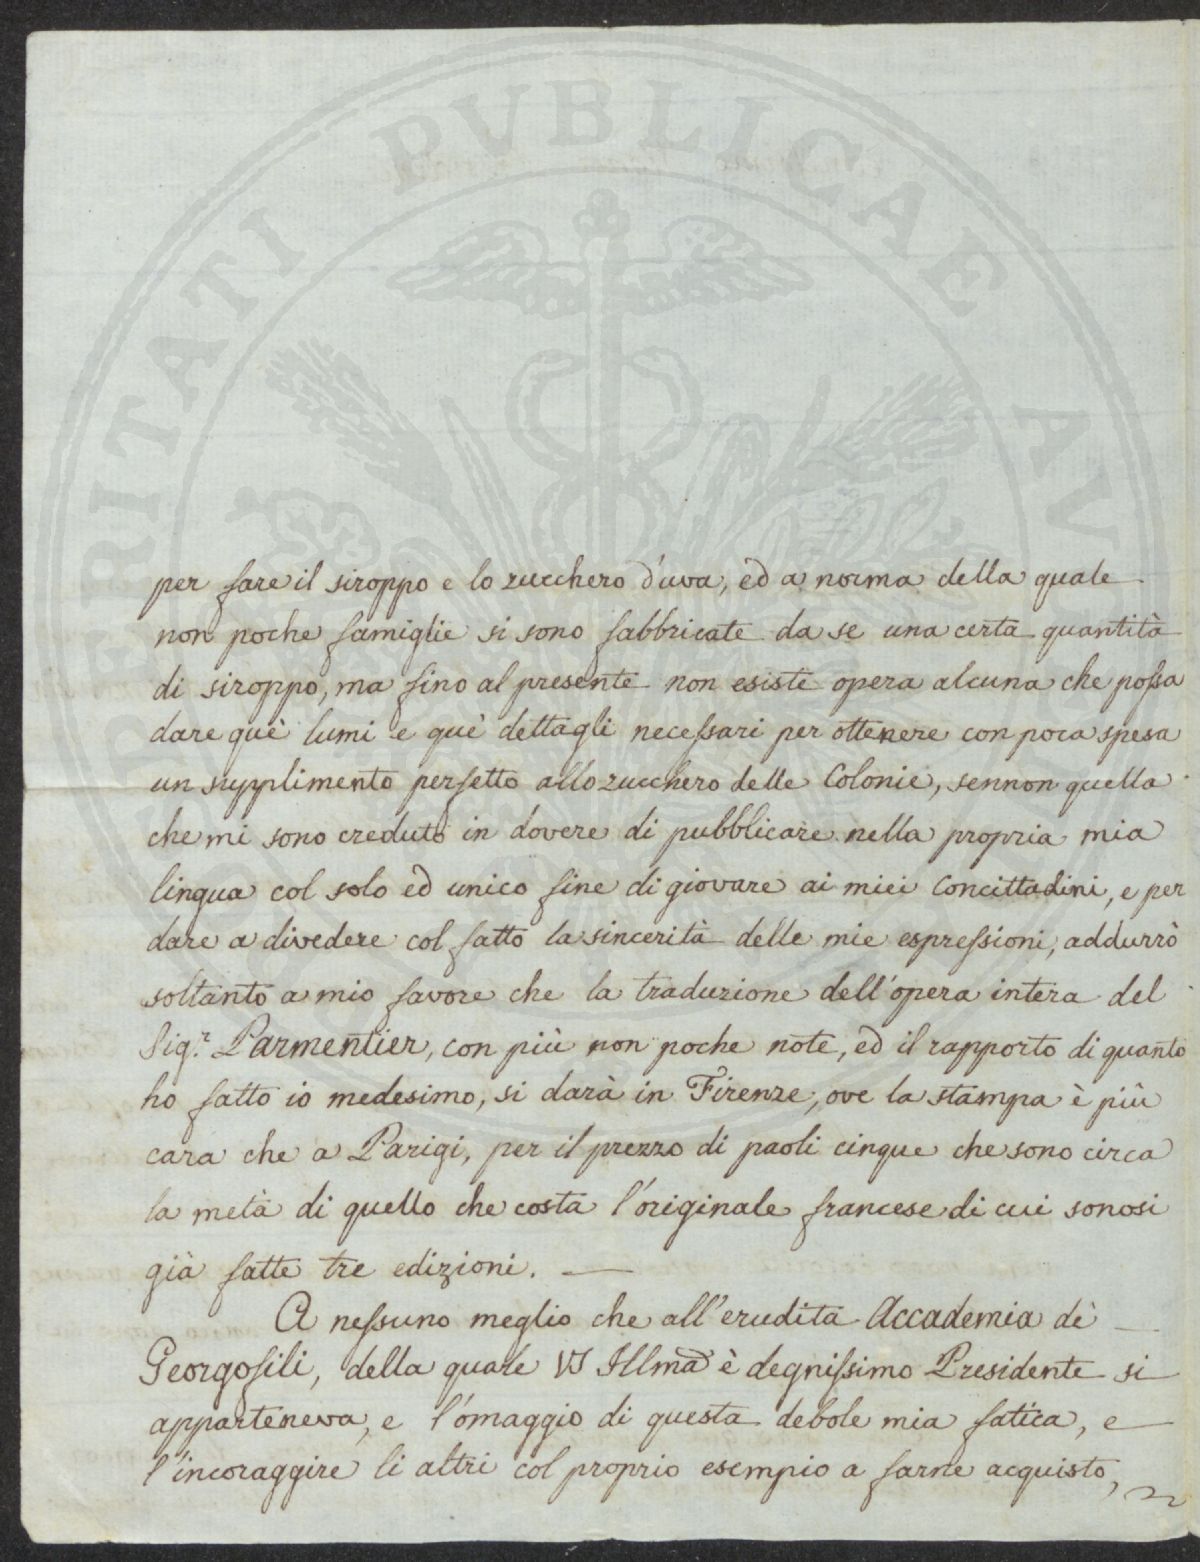 PROSPERITATI PVBLICAE AV
per fare il siroppo e lo zucchero d'uva, ed a norma della quale
non poche famiglie si sono fabbricate da se una certa quantità
di siroppo, ma fino al presente non esiste opera alcuna che possa
dare què lumi e què dettagli necessari per ottenere con poca spesa
un supplimento perfetto allo zucchero delle Colonie, sennon quella
che mi sono creduto in dovere di pubblicare nella propria mia
lingua col solo ed unico fine di giovare ai miei Concittadini, e per
dare a divedere col fatto la sincerità delle mie espressioni, addurrò
soltanto a mio favore che la traduzione dell'opera intera del
Sigr. Parmentier, con più non poche note, ed il rapporto di quanto
ho fatto io medesimo, si darà in Firenze, ove la stampa è più
cara che a Parigi, per il prezzo di paoli cinque che sono circa
la metà di quello che costa l'originale francese di cui sonosi
già fatte tre edizioni. —
A nessuno meglio che all'erudita Accademia dè —
Georgofili, della quale VS Illma è degnissimo Presidente si
apparteneva, e l'omaggio di questa debole mia fatica, e —
l'incoraggire li altri col proprio esempio a farne acquisto,